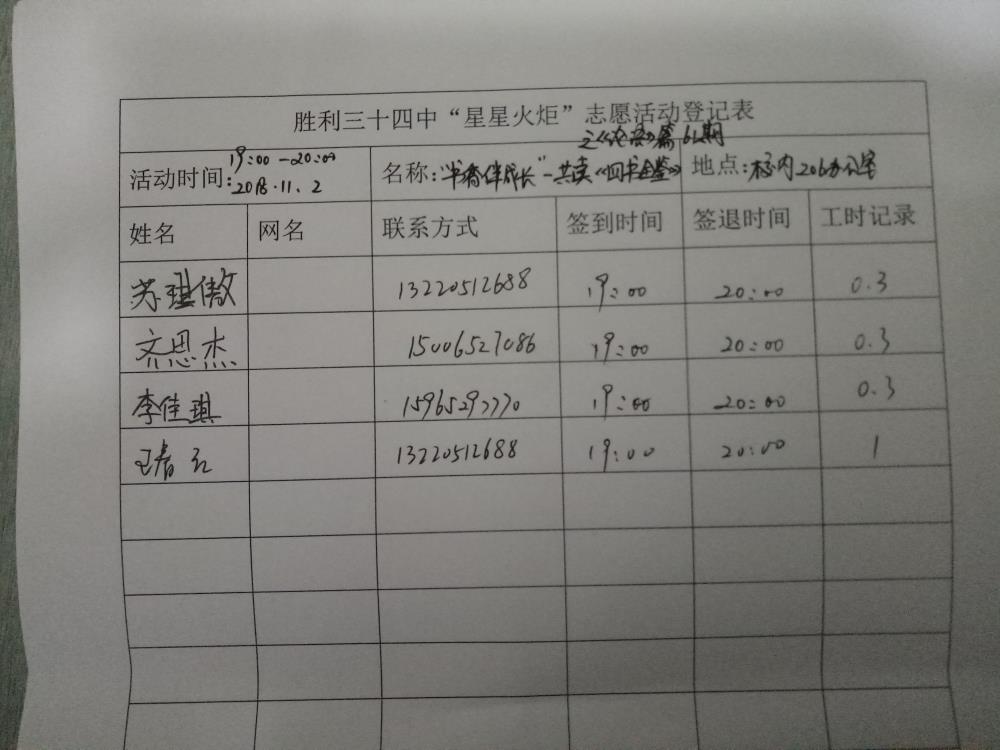 胜利三十四中“星星火炬”志愿活动登记表
之《论语》篇 61期
19:00—20:00
活动时间:2018.11.2 名称:“书香伴成长”—共读《四书全鉴》 地点:校内206办公室
姓名 网名 联系方式 签到时间 签退时间 工时记录
苏琪傲 13220512688 19:00 20:00 0.3
齐思杰 15006527086 19:00 20:00 0.3
李佳琪 15965297770 19:00 20:00 0.3
王春红 13220512688 19:00 20:00 1